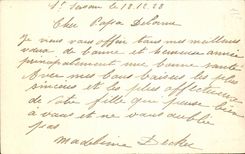 St Vaison le 18.12.28
Cher Papa Delorme
Je vous vous offre tous mes meilleurs
vœux de bonne et heureuse année
principalement une bonne santé
Avec mes bons baisers les plus
sincères et les plus affectueux
de vôtre fille que pense bien
à vous et ne vous oublie
pas
Madeleine Decker